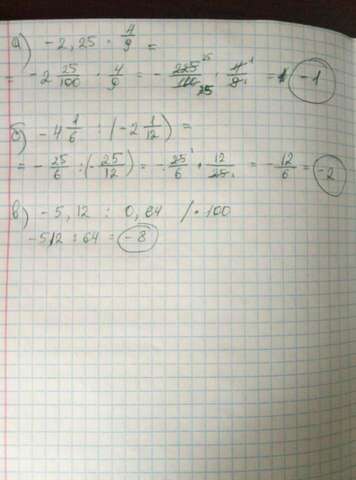 а) -2,25 · 4/9 =
= -2 25/100 · 4/9 = - 225/100 25 25 · 4/9 1 1 = -1
б) -4 1/6 : (-2 1/12) =
= - 25/6 : (- 25/12) = - 25/6 1 · 12/25 1 = - 12/6 = -2
в) -5,12 : 0,64 / · 100
-512 : 64 = -8